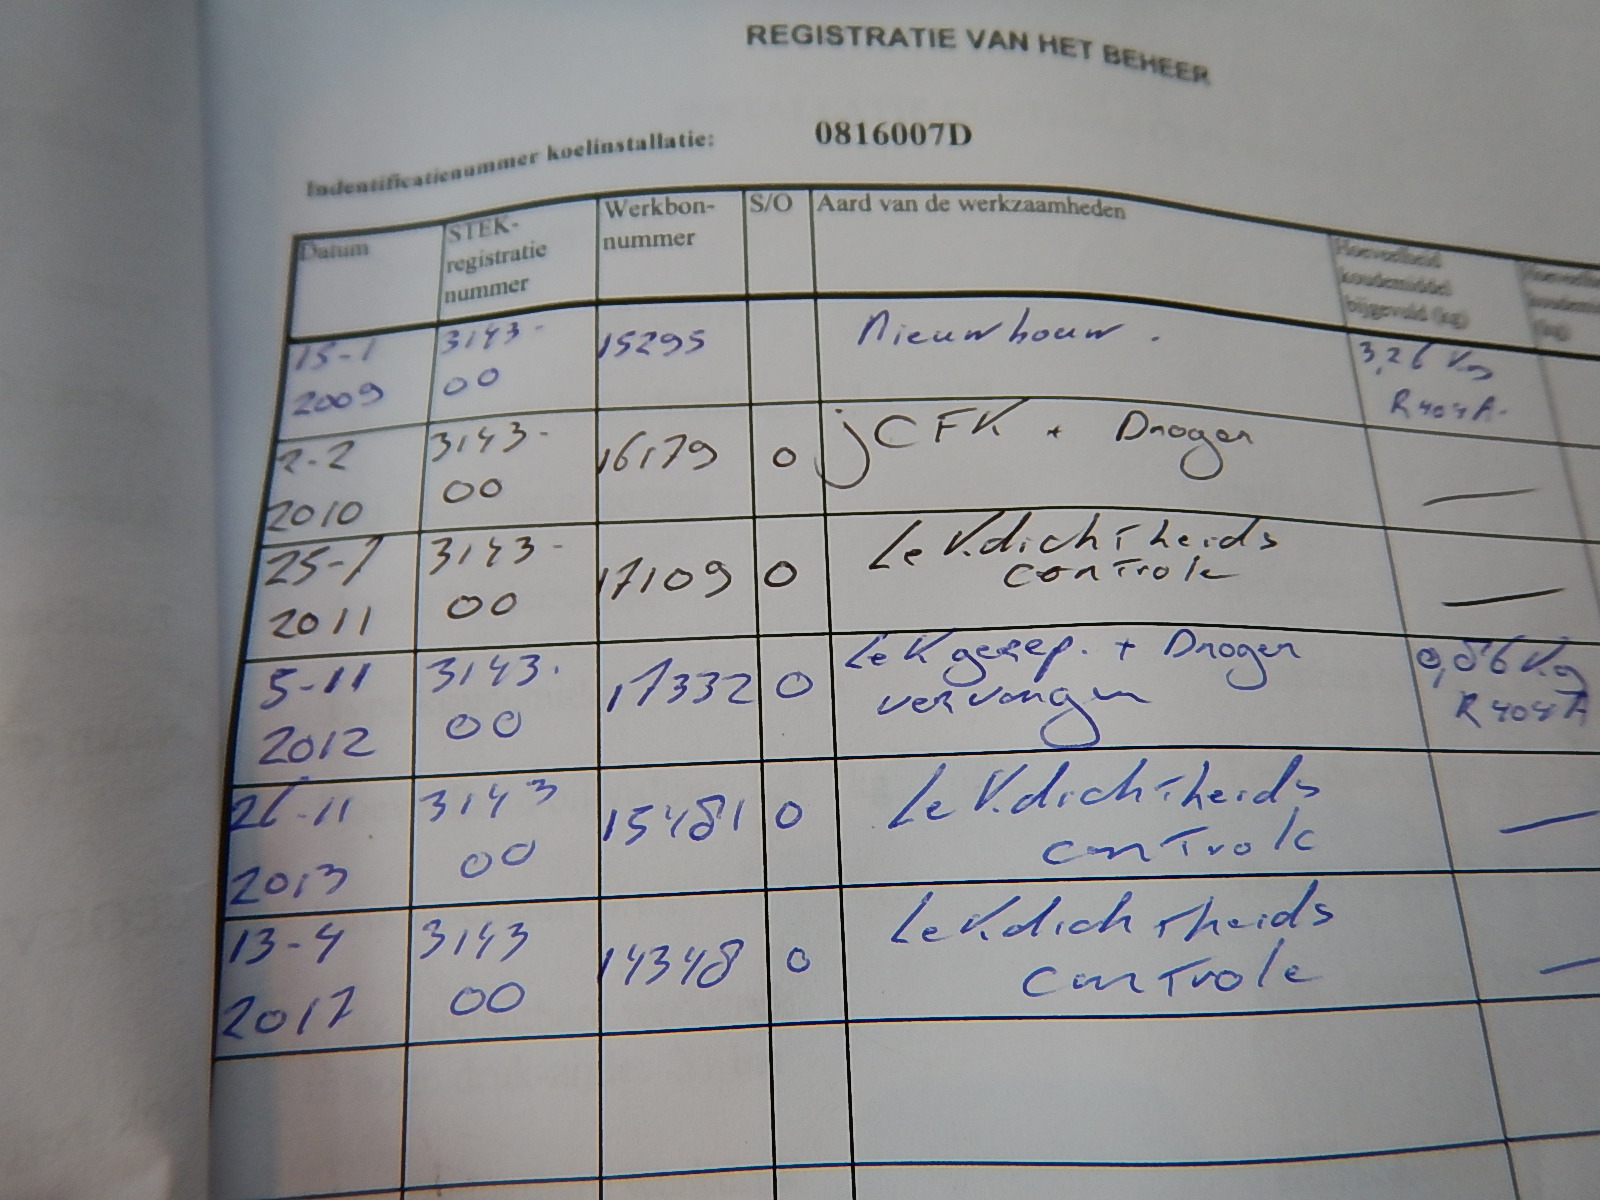 REGISTRATIE VAN HET BEHEER
Indentificatienummer koelinstallatie: 0816007D
Datum
STEK-
registratie
nummer
Werkbon-
nummer
S/O
Aard van de werkzaamheden
Hoeveelheid
koudemiddel
bijgevuld (kg)
(kg)
15-1
2009
3143-
00
15295
Nieuwbouw.
3,26 Kg
R404A.
2-2
2010
3143-
00
16179
O
jCFK + Droger
25-7
2011
3143-
00
17109
O
Lekdichtheids
controle
5-11
2012
3143.
00
17332
O
Lek gerep. + Droger
vervangen
R404A
26-11
2013
3143
00
15481
O
Lekdichtheids
controle
13-4
2017
3143
00
14348
O
Lekdichtheids
controle